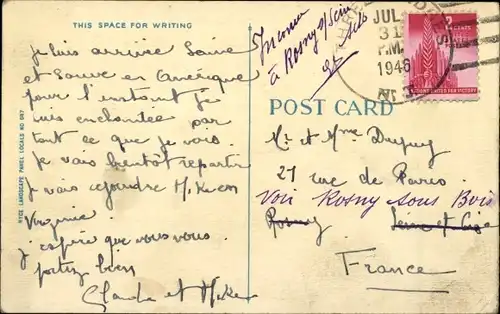 THIS SPACE FOR WRITING
je suis arrivée Saine
et Sauve en Amérique
pour l'instant je
suis enchantée par
tout ce que je vois.
je vais bientôt repartir
je vais rejoindre M
Virginie
j'espère que vous vous
portez bien
Claude et
NYCE LANDSCAPE PANEL LOCALS NO 567
Inconnu
à Rosny s/Seine
JUL
31
P.M.
1946
N.Y.
UNITED STATES
NATIONS UNITED FOR VICTORY
POST CARD
Mr et Mme Dupuy
27 rue de Paris
Voir Rosny sous Bois
Rosny Seine et Oise
France